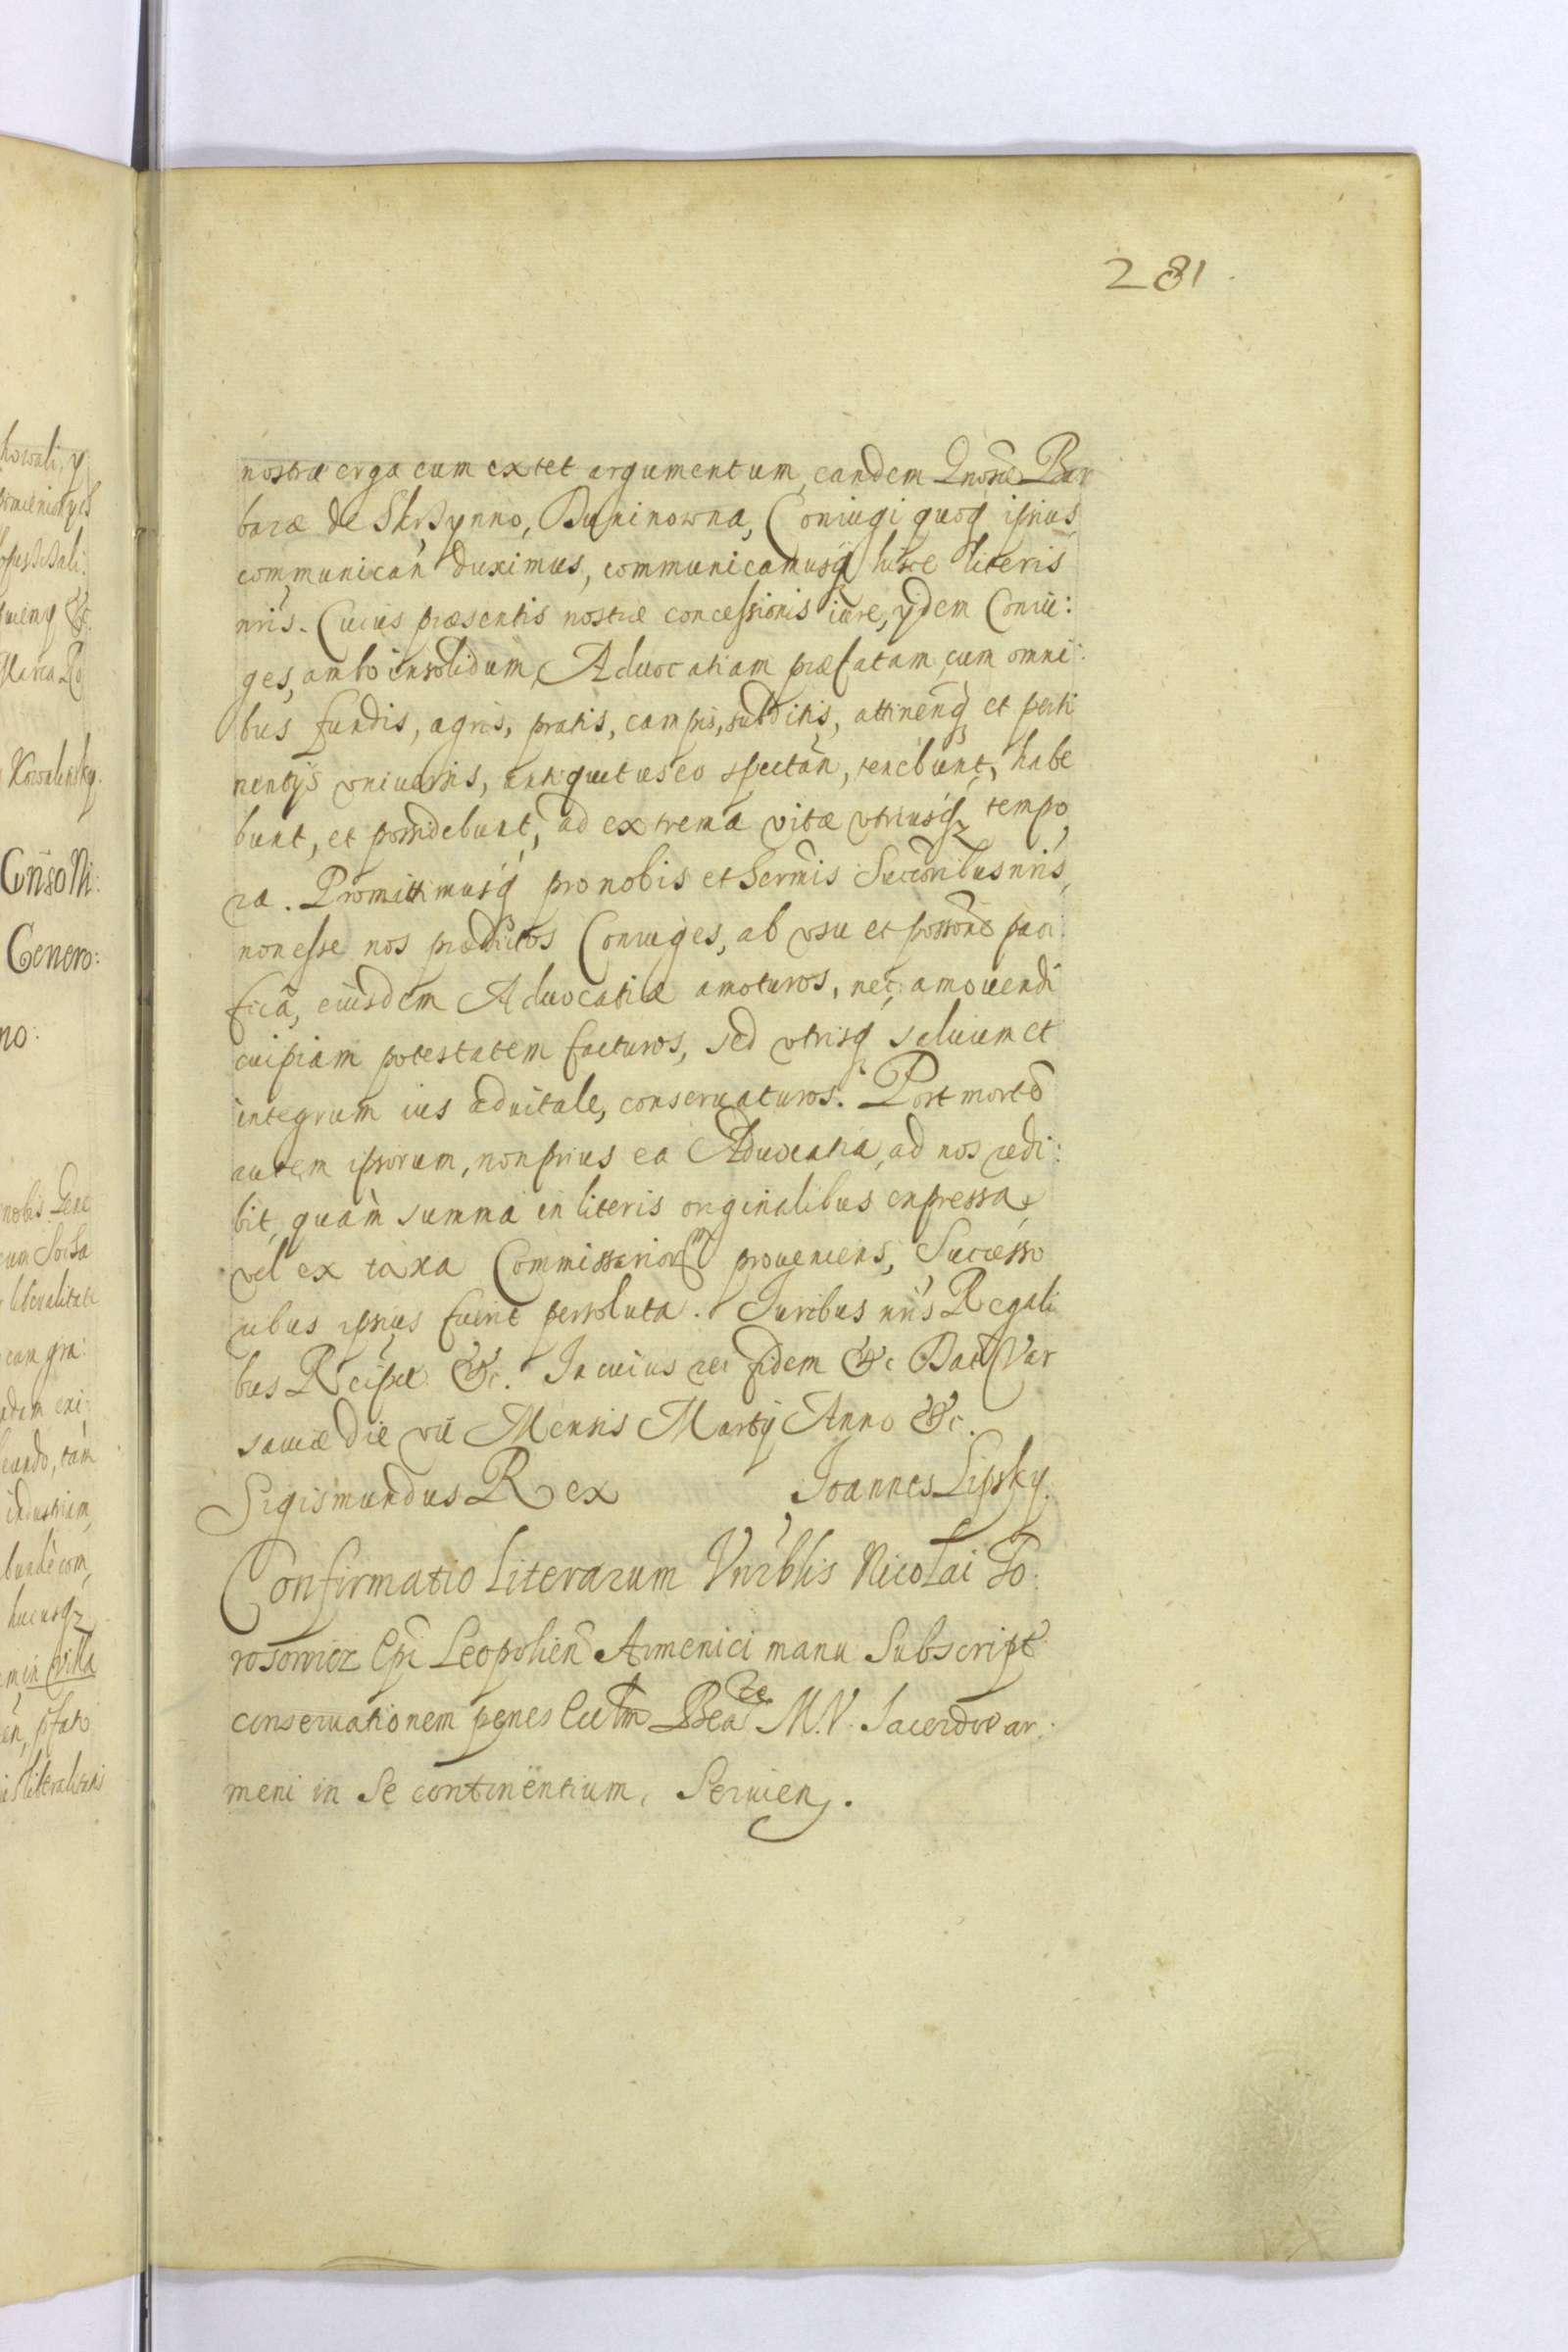 281
nostræ erga eum extet argumentum, eandem Gnosæ Bar
baræ de Skrzynno, Duninowna, Coniugi quoq ipsius
communican duximus, communicamusq hisce literis
nris. Cuius præsentis nostræ concessionis iure, ydem Coniu:
ges, ambo insolidum, Aduocatiam præfatam, cum omni:
bus fundis, agris, pratis, campis, subditis, attinenq et perti
nentijs vniuersis, antiquitus eo spectan, tenebunt, habe
bunt, et possidebunt, ad extrema vitæ vtriusq tempo
ra. Promittimusq pro nobis et Sermis Succoribus nris,
non esse nos prædictos Coniuges, ab vsu et possone paci:
fica, eiusdem Aduocatiæ amoturos, nec amouendi
cuipiam potestatem facturos, sed vtrisq saluum et
integrum ius aduitale, conseruaturos. Post morte
autem ipsorum, non prius ea Aduocatia, ad nos redi:
bit, quàm summa in literis originalibus expressa,
vel ex taxa Commissarior proueniens, Successo
ribus ipsius fuerit persoluta. Iuribus nris Regali
bus Reipcæ &c. In cuius rei fidem &c Dat Var
sauiæ die vii Mensis Martij Anno &c.
Sigismundus Rex Joannes Lipsky.
Confirmatio Literarum Vnrblis Nicolai To:
rosowicz Epi Leopolien Armenici manu Subscript
conseruationem penes Ecclm Beatæ M.V. Sacerdoti ar:
meni in Se continentium, Seruien.
howali, y
Kowalinsky.
Genero:
no:
nobis
liberalitate
gra:
tàm
industriam,
com,
hucusq
in Villa